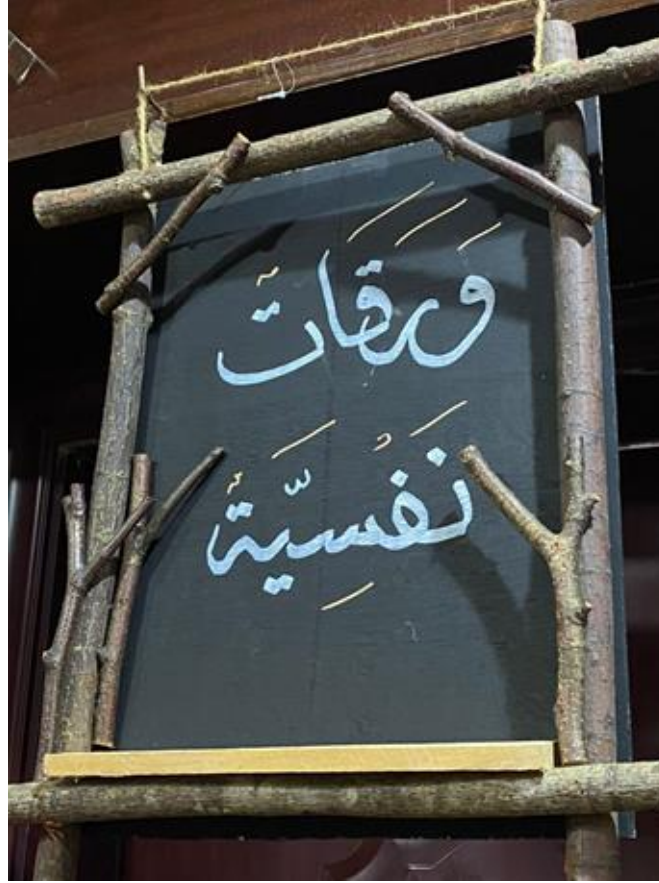 وَرَقَاتٌ
نَفْسِيَّةٌ